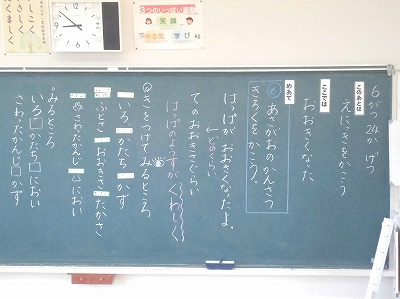 3つのいっぱい運動
笑顔
やる気 学び
6がつ24か げつ
このあとは
えにっきをかこう
ここでは
おおきくなった
めあて
あさがおのかんさつ
きろくをかこう。
はっぱがおおきくなったよ。
←どのくらい
てのおおきさぐらい
はっぱのようすがくわしく
きをつけてみるところ
いろ かたち かず
ふとさ おおきさ たかさ
さわったかんじ におい
みるところ
いろ かたち におい
さわったかんじ かず